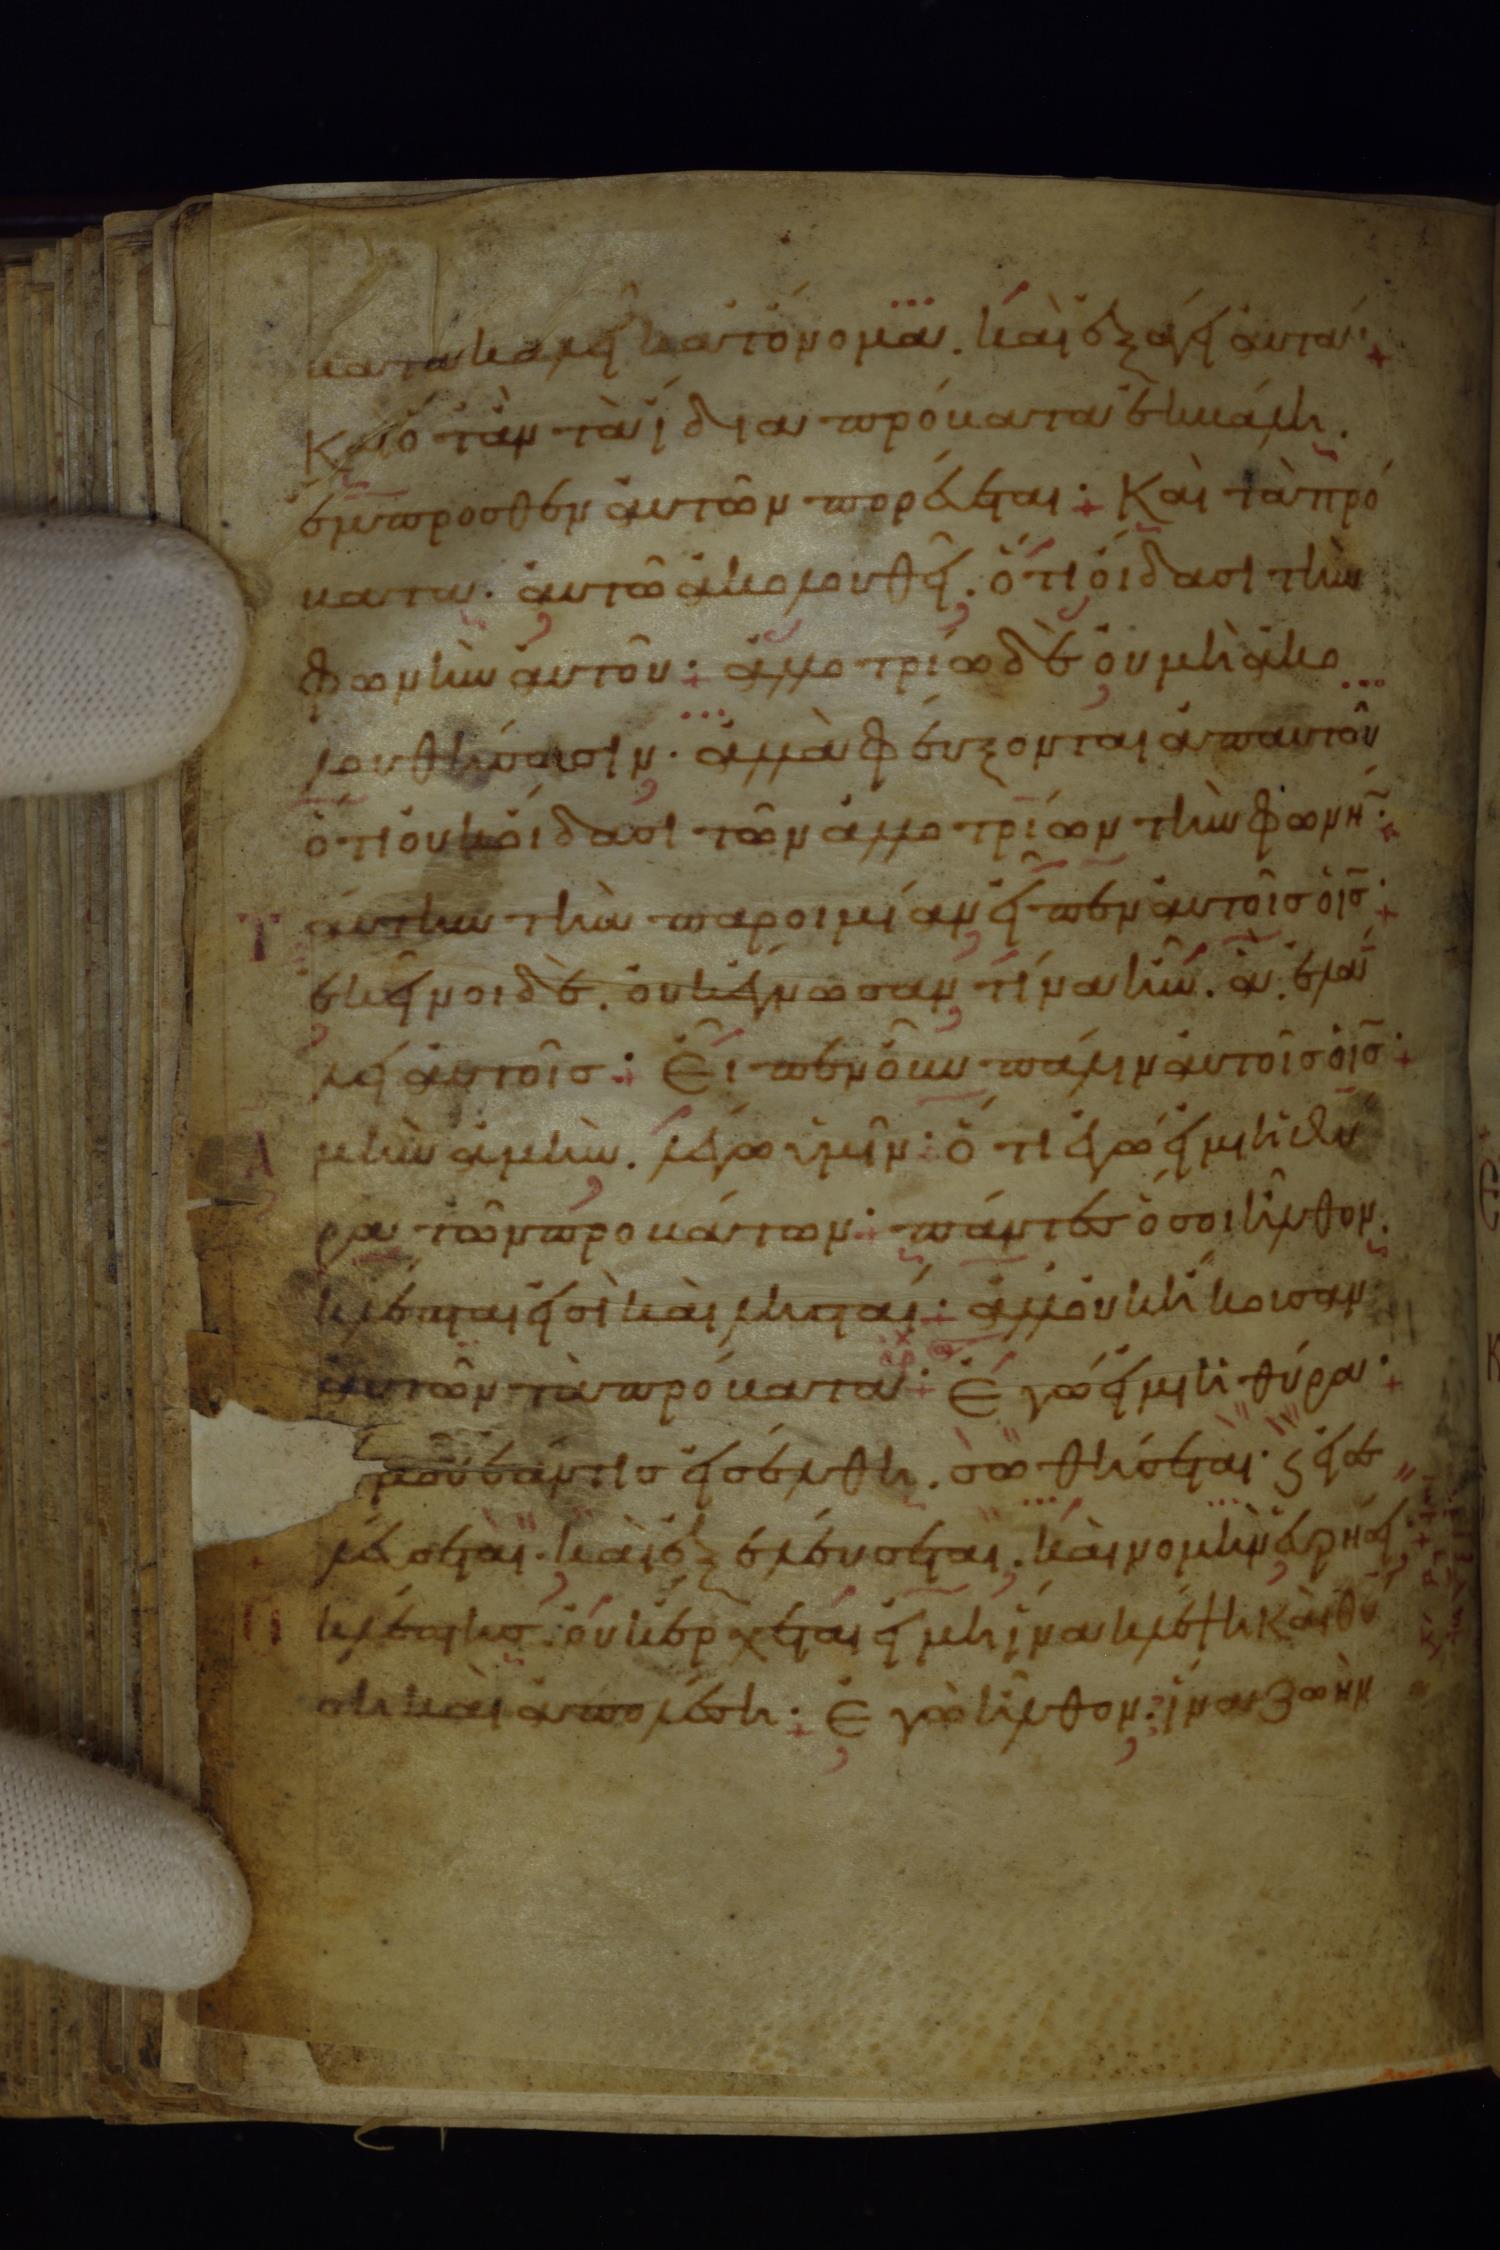 βατα καλεῖ κατ όνομα. και ἐξάγει ἀυτά
Και ὅταν τὰ ΐδια πρόβατα ἐκβάλη.
ἔμπροσθεν ἀυτῶν πορέυεται: Και τὰ πρό
βατα. ἀυτῶ ἀκολουθεῖ. ὅτι ὄιδασι τὴν
φωνὴν ἀυτοῦ: ἀλλοτρίω δὲ ὀυ μὴ ἀκο
λουθήσωσιν. ἀλλὰ φέυξονται ἀπ αυτοῦ
ὅτι ὀυκ ὄιδασι τῶν ἀλλοτρίων τὴν φωνή:
Τ αύτην τὴν παροιμίαν εἶπεν ἀυτοῖς ὁ ις
ἐκεῖνοι δὲ. ὀυκ ἔγνωσαν τίνα ἦν. ἃ. ἐλά
λει ἀυτοῖς: Εἶπεν οὖν πάλιν ἀυτοῖς ὁ ις
Α μὴν ἀμὴν. λέγω ὑμῖν: ὅτι ἐγώ ειμι ἡ θύ
ρα τῶν προβάτων: πάντες ὅσοι ἦλθον.
κλέπται εἰσὶ και λησται: ἀλλ ὀυκ ἤκουσαν
ἀυτῶν τὰ πρόβατα: Εγώ ειμι ἡ θύρα:
μοῦ ἐάν τις εἰσέλθη. σωθήσεται. ϛ εἰσε
λέυσεται. και ἐξελέυσεται. και νομὴν ἑυρήσει:
Ο κλέπτης. ὀυκ έρχεται ει μὴ ἵνα κλέψη και θύ
ση και ἀπολέση: Εγὼ ἦλθον: ἵνα ζωὴν